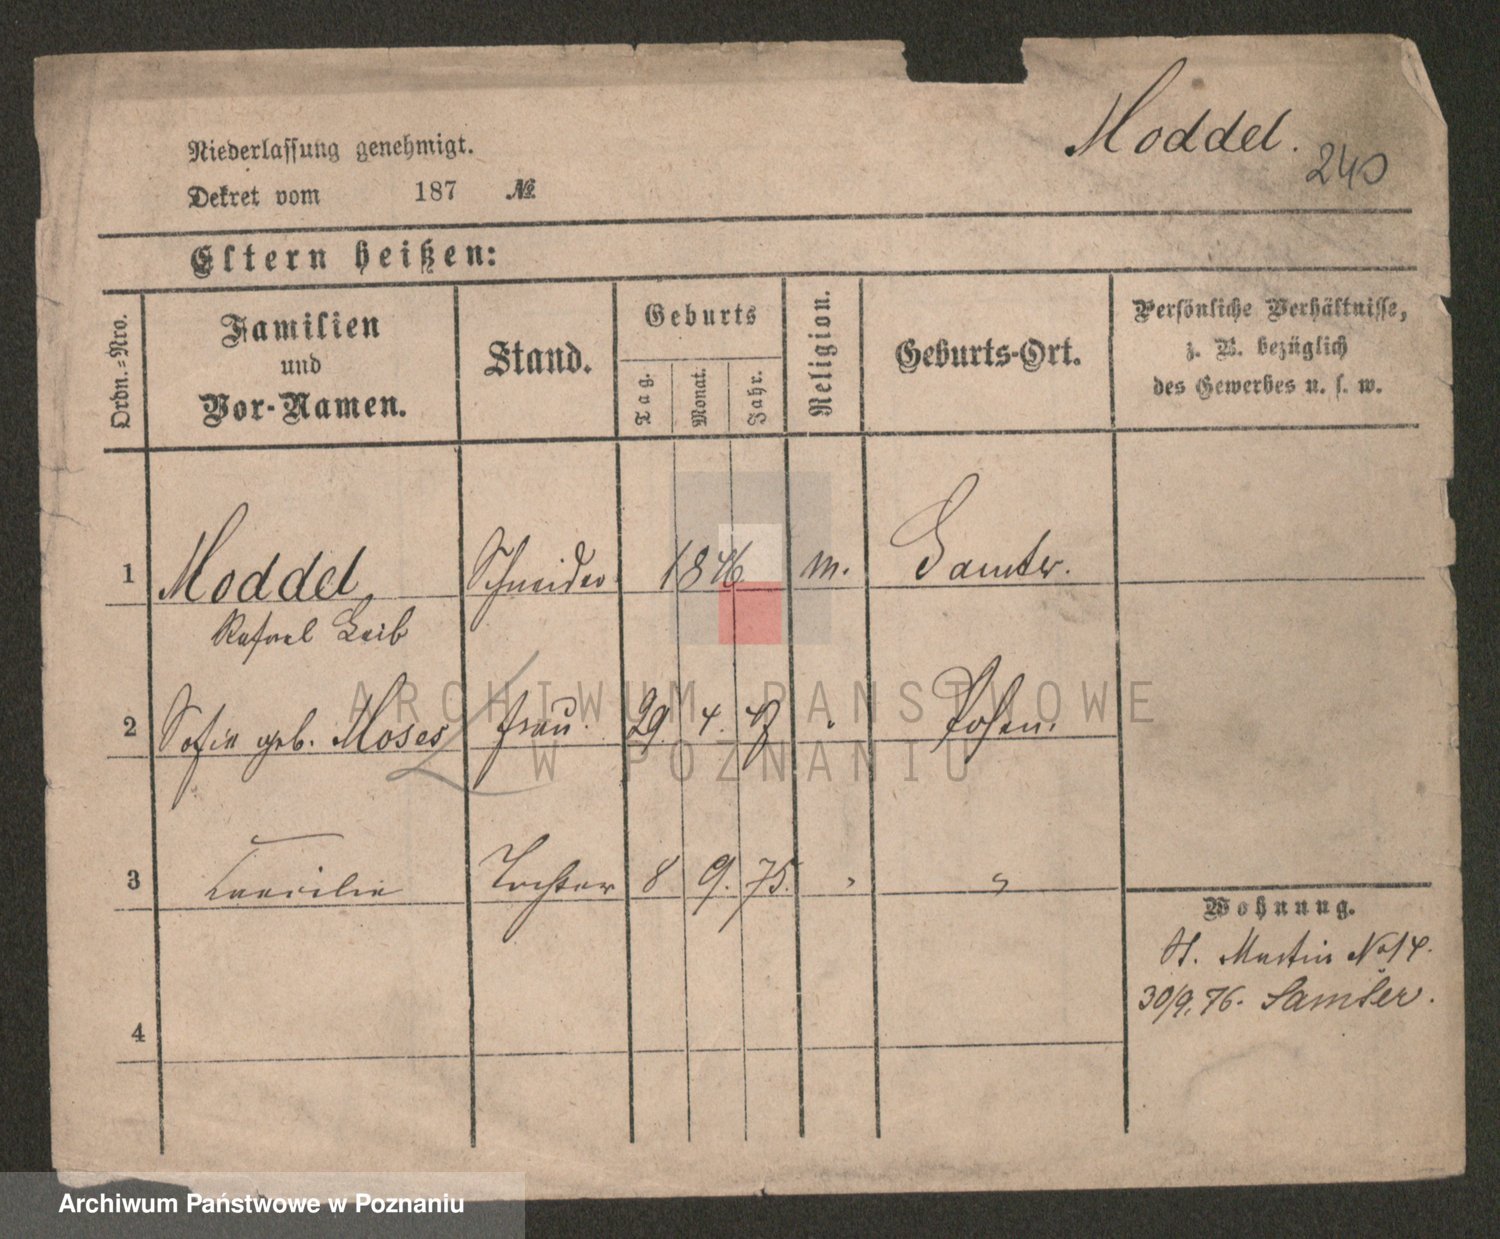 Moddel.
240
Niederlassung genehmigt.
Dekret vom 187 №
Eltern heißen:
Ordn.-Nro.
Familien
und
Vor-Namen.
Stand.
Geburts
Tag.
Monat.
Jahr.
Religion.
Geburts-Ort.
Persönliche Verhältnisse,
z. B. bezüglich
des Gewerbes u. s. w.
1 Moddel Schneider 1846 m. Samter.
Rafael Leib
2 Sofie geb. Moses Frau. 29. 4. 47 " Posen.
3 Caecilie Tochter 8 9. 75. " "
Wohnung.
St. Martin No 14.
30/9. 76. Samter.
4
ARCHIWUM PAŃSTWOWE
W POZNANIU
Archiwum Państwowe w Poznaniu